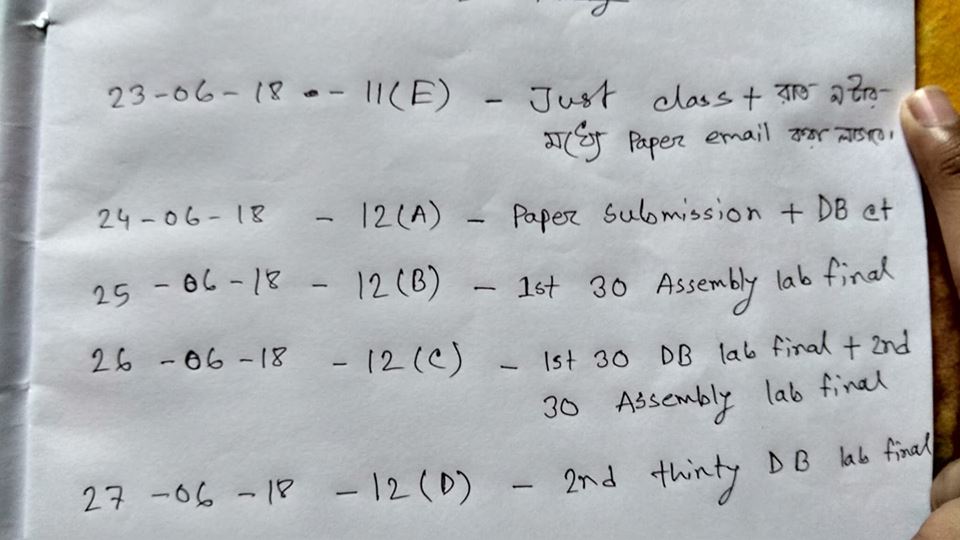 23-06-18 - - 11(E) - Just class + রাত ৯টার
মধ্যে Paper email করা লাগবে।
24-06-18 - 12(A) - Paper Submission + DB ct
25-06-18 - 12(B) - 1st 30 Assembly lab final
26-06-18 - 12(C) - 1st 30 DB lab final + 2nd
30 Assembly lab final
27-06-18 - 12(D) - 2nd thinty DB lab final